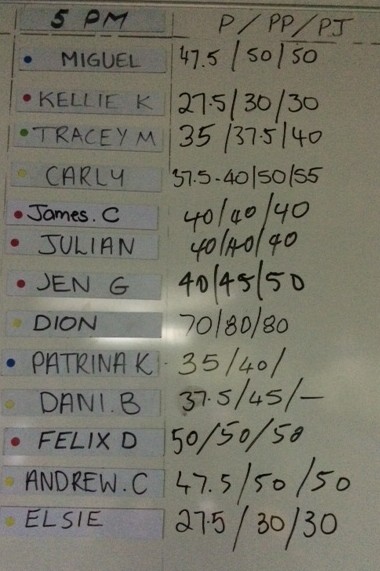 5 PM P/PP/PJ
MIGUEL 47.5/50/50
KELLIE K 27.5/30/30
TRACEY M 35/37.5/40
CARLY 37.5-40/50/55
James.C 40/40/40
JULIAN 40/40/40
JEN G 40/45/50
DION 70/80/80
PATRINA K 35/40/
DANI.B 37.5/45/—
FELIX D 50/50/50
ANDREW.C 47.5/50/50
ELSIE 27.5/30/30